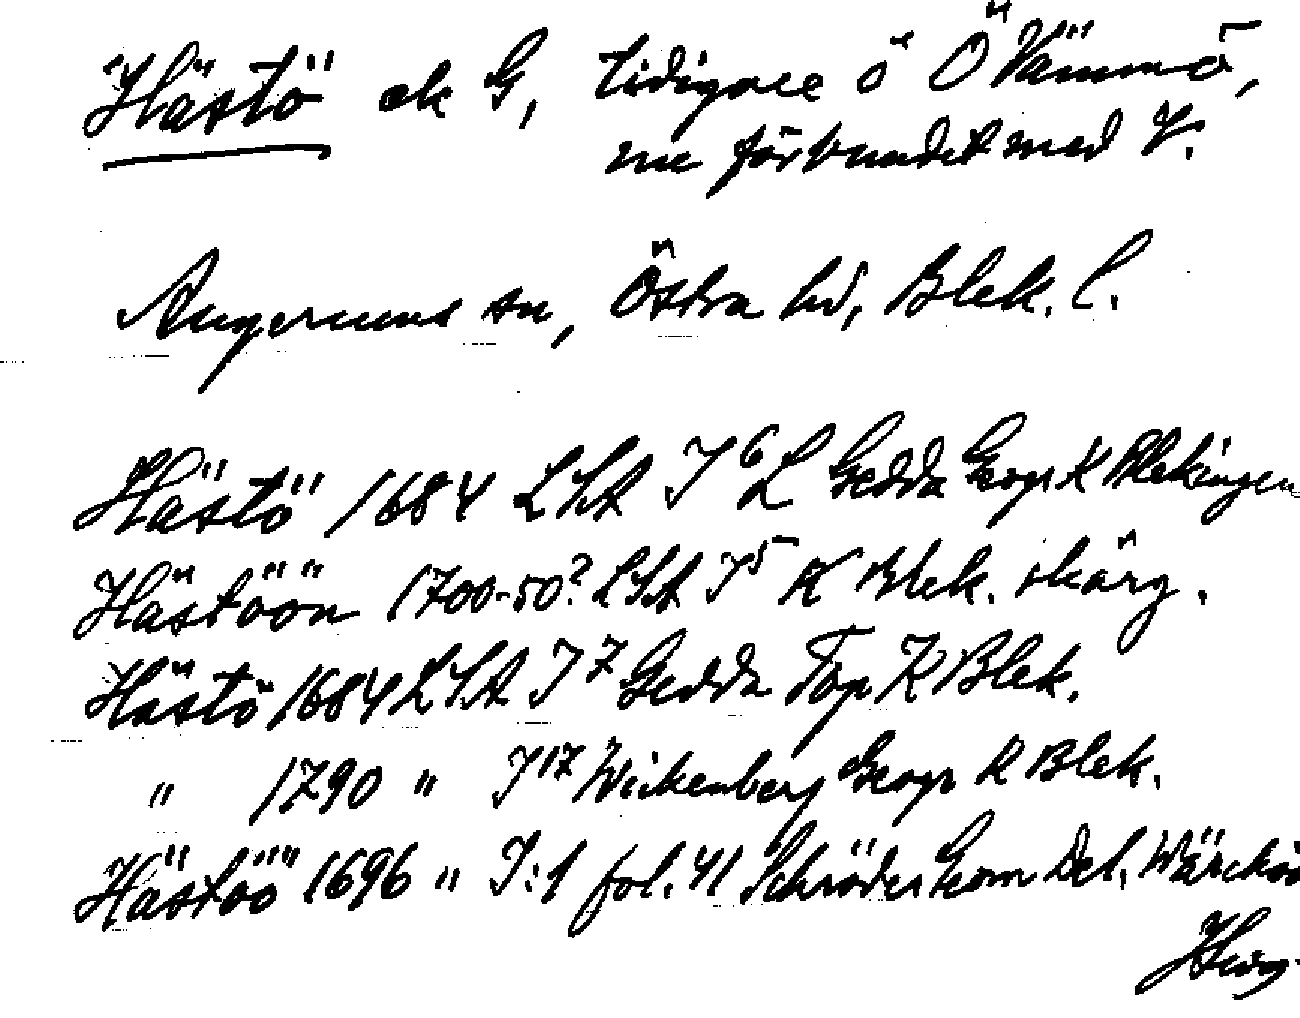 Hästö ek G, tidigare ö Ö Vämmö,
nu förbundet med V.
Augerums sn, Östra hd, Blek. l.
Hästö 1684 LSA I 6 L Gedda Geogr K Blekingen
Hästöön 1700-50? LSA I 5 K Blek. skärg.
Hästö 1684 LSA I 7 Gedda Top K Blek.
" 1790 " I 17 Wickenberg Geogr K Blek.
Hästöö 1696 " I:1 fol. 41 Schröder Geom Del.